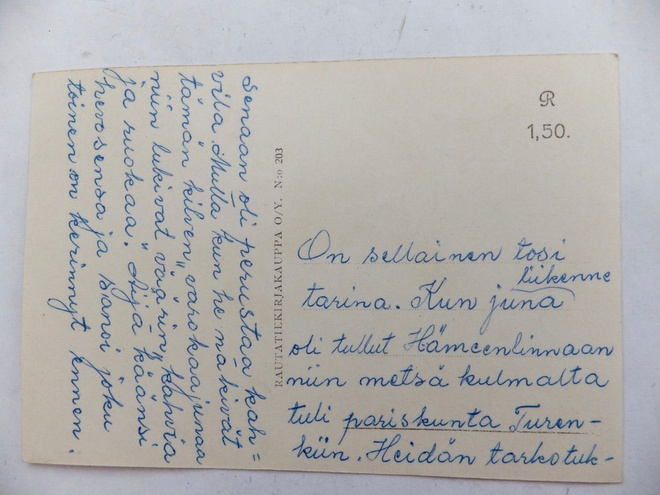 R
1,50.
On sellainen tosi
liikenne
tarina. Kun juna
oli tullut Hämeenlinnaan
niin metsä kulmalta
tuli pariskunta Turen-
kiin. Heidän tarkotuk-
senaan oli perustaa kah=
vila Mutta kun he näkivät
tämän kilven "varokaajunaa
niin lukivat väärin "kahvia
ja ruokaa." Äijä käänsi
hevosensa ja sanoi joku
toinen on kerinnyt ennen.
RAUTATIEKIRJAKAUPPA O/Y. N:o 203